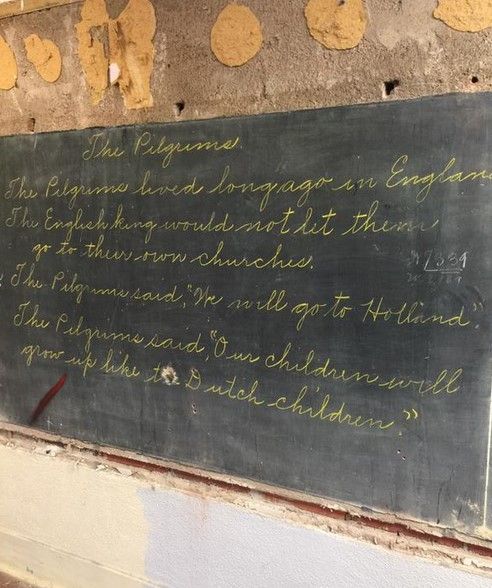 The Pilgrims.
The Pilgrims lived long ago in Englan
The English king would not let them
go to their own churches.
The Pilgrims said, "We will go to Holland."
The Pilgrims said, "Our children will
grow up like to Dutch children."